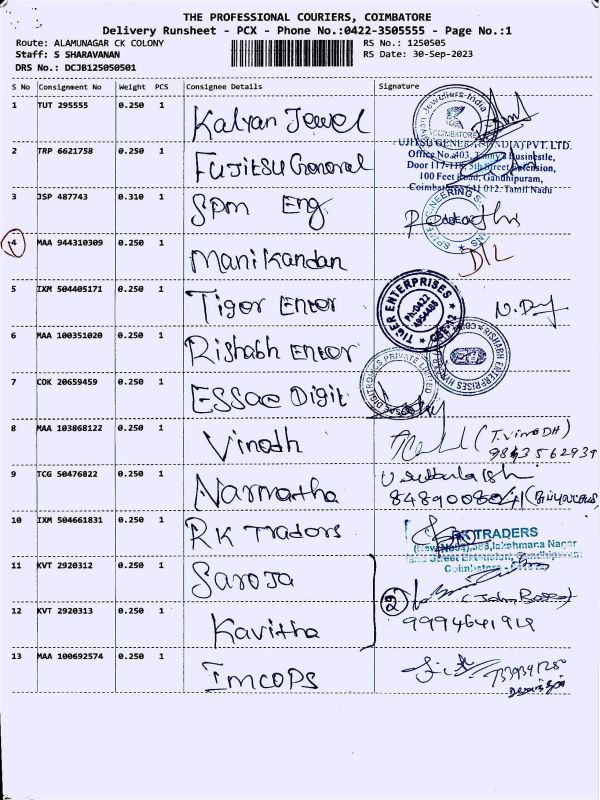 THE PROFESSIONAL COURIERS, COIMBATORE
Delivery Runsheet - PCX - Phone No.:0422-3505555 - Page No.:1
Route: ALAMUNAGAR CK COLONY RS No.: 1250505
Staff: S SHARAVANAN RS Date: 30-Sep-2023
DRS No.: DCJB125050501
S No Consignment No Weight PCS Consignee Details Signature
1 TUT 295555 0.250 1 Kalyan Jewel
2 TRP 6621758 0.250 1 Fujitsu General
UJITSU GENERAL (INDIA) PVT. LTD.
Office No. 403, Businestle,
Door 117-118, 5th Street Extension,
100 Feet Road, Gandhipuram,
Coimbatore 641 012. Tamil Nadu
3 JSP 487743 0.310 1 Spm Eng
4 MAA 944310309 0.250 1 Manikandan D/L
5 IXM 504405171 0.250 1 Tiger Enter
TIGER ENTERPRISES
Ph:0422
4954486
CBE-12
6 MAA 100351020 0.250 1 Rishabh Enter
RISHABH ENTERPRISES
7 COK 20659459 0.250 1 ESSae Digit
DIGITRONICS PRIVATE LIMITED
8 MAA 103868122 0.250 1 Vinoth (T.VINODH)
9 TCG 50476822 0.250 1 Narmatha
10 IXM 504661831 0.250 1 RK Traders
TRADERS
Lakshmana Nagar
Street Extension, Gandhipuram
Coimbatore
11 KVT 2920312 0.250 1 Saroja
29
12 KVT 2920313 0.250 1 Kavitha 9994641919
13 MAA 100692574 0.250 1 Imcops